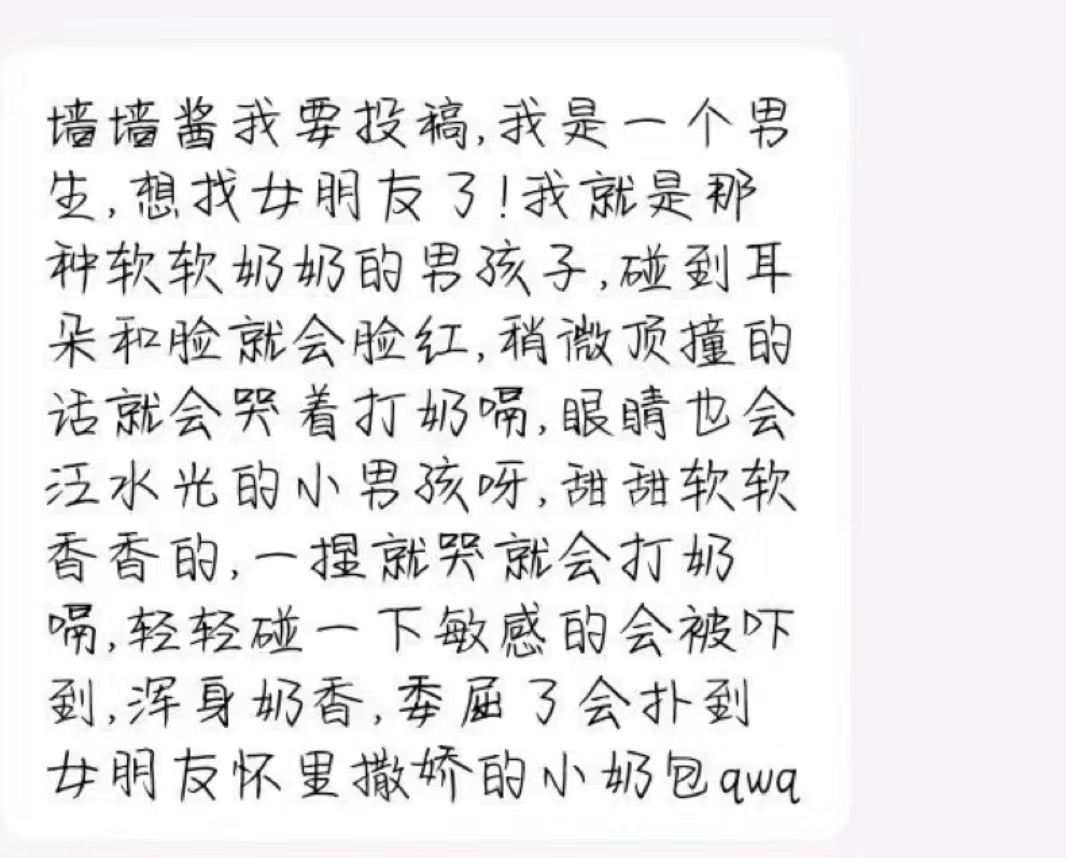 墙墙酱我要投稿,我是一个男
生,想找女朋友了!我就是那
种软软奶奶的男孩子,碰到耳
朵和脸就会脸红,稍微顶撞的
话就会哭着打奶嗝,眼睛也会
汪水光的小男孩呀,甜甜软软
香香的,一捏就哭就会打奶
嗝,轻轻碰一下敏感的会被吓
到,浑身奶香,委屈了会扑到
女朋友怀里撒娇的小奶包qwq